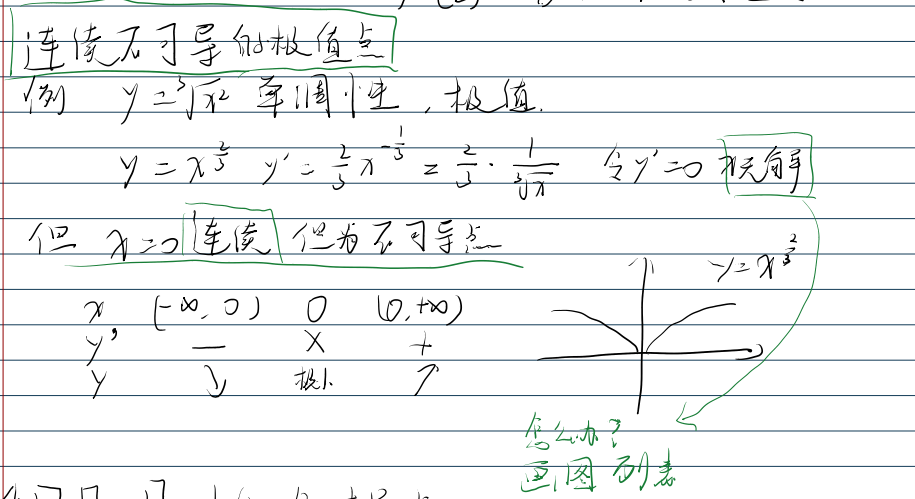 连续不可导的极值点
例 y=∛x² 单调性,极值.
y=x^{2/3} y'=2/3 x^{-1/3}=2/3·1/∛x 令y'=0 x无解
但 x=0连续 但为不可导点
y=x^{2/3}
x (-∞,0) 0 (0,+∞)
y' — × +
y ↘ 极小 ↗
怎么办?
画图 列表